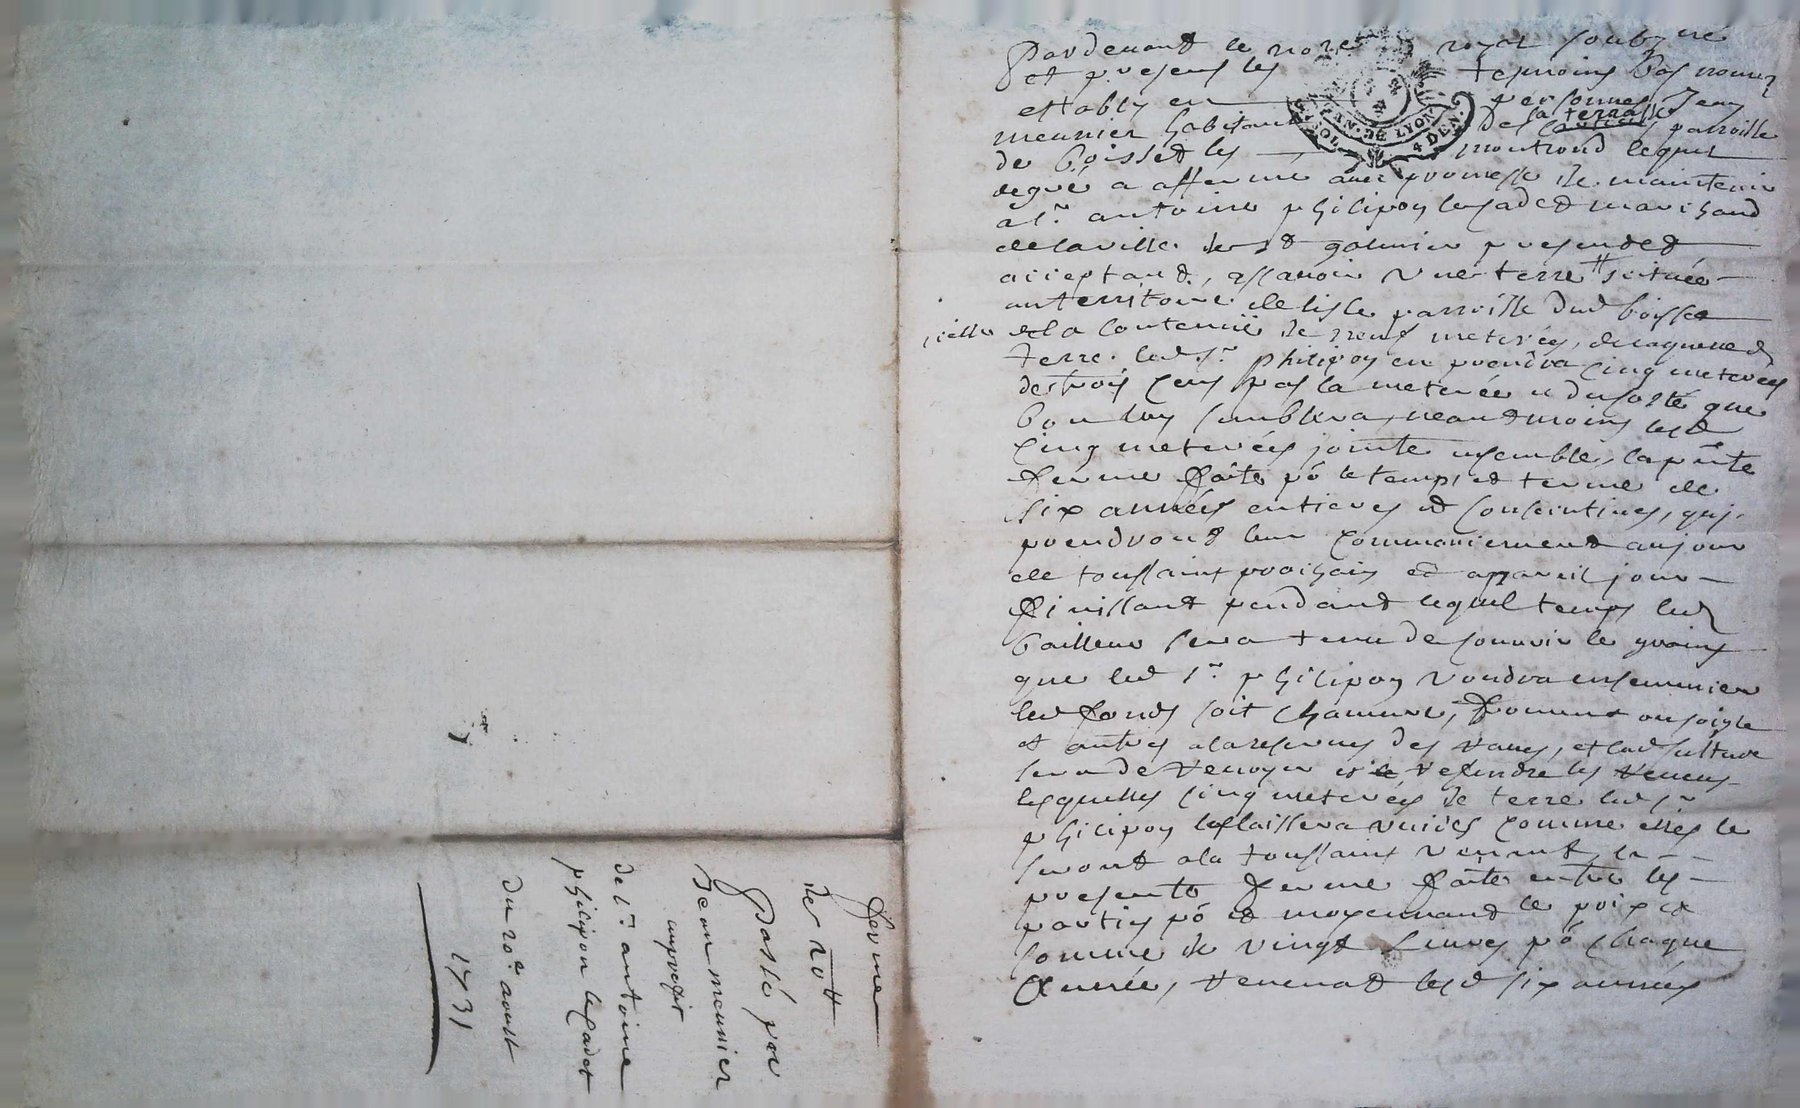 Pardevant le nore royal soubzne
et presens les tesmoins bas nomez
estably en personnes Jean
meunier habitant de la terrasse parroisse
de boisset les montrond lequel
degré a afferme avec promesse de maintenir
a Sr antoine philipon le cadet marchand
de la ville de st galmier present et
acceptant, assavoir une terre située
au territoire de lisle parroisse dud boisset
de la contenüe de neuf meterées, de laquelle
terre led Sr philipon en prendra cinq meterées
des trois cens pas la meterée et du costé que
bon luy semblera, neantmoins lesd
cinq meterées jointe ensemble, la pnte
ferme faite po le temps et terme de
six années entieres et consecutives, qui
prendront leur commancement au jour
de toussaint prochain et a pareil jour
finissant pendant lequel temps led
bailleur sera tenu de couvrir le grains
que led Sr philipon voudra ensemencer
led fonds soit chanvre, froment ou soigle
et autres a la reserves des raves, et lad culture
sera de
lesquelles cinq meterées de terre led Sr
philipon les laissera vuides comme elles le
seront a la toussaint venant, la
presente ferme faite entre les
parties po et moyennant le prix et
somme de vingt livres po chaque
année, venant lesd six années
ferme
de 20 tt
Passé par
Jean meunier
au profit
de Sr antoine
philipon le cadet
du 20e aoust
1731
GEN. DE LYON
4 DEN.